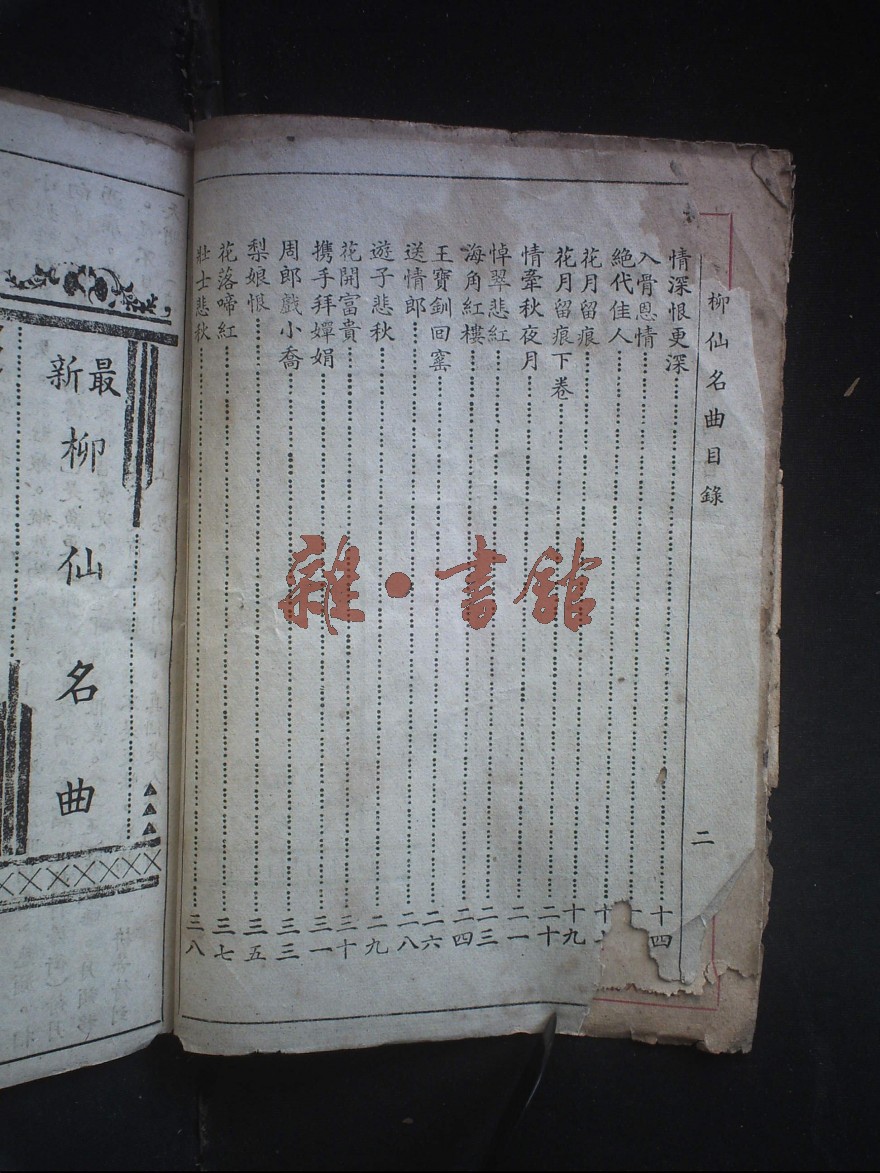 柳仙名曲目錄
二
情深恨更深 十四
入骨恩情
絕代佳人
花月留痕 十九
花月留痕下卷 二十
情牽秋夜月 二一
悼翠悲紅 二三
海角紅樓 二四
王寶釧回窰 二六
送情郎 二八
遊子悲秋 二九
花開富貴 三十
携手拜嬋娟 三一
周郎戲小喬 三三
梨娘恨 三五
花落啼紅 三七
壯士悲秋 三八
最新
柳仙名曲
雜·書館